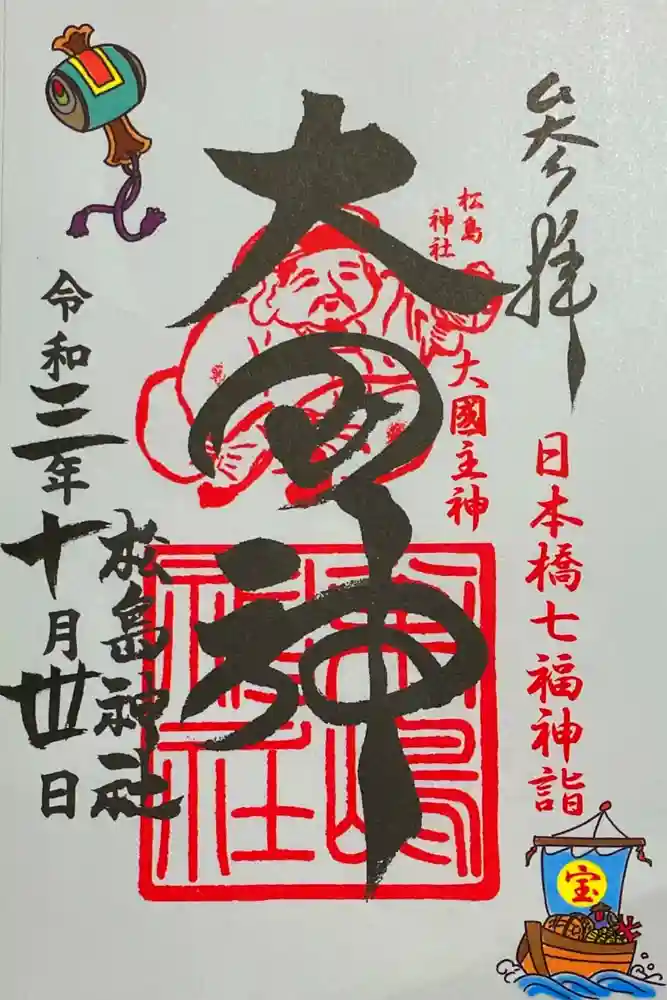 参拝
日本橋七福神詣
松島
神社
大國主神
大
神
松嶋
神社
松島神社
令和三年十月丗日
宝